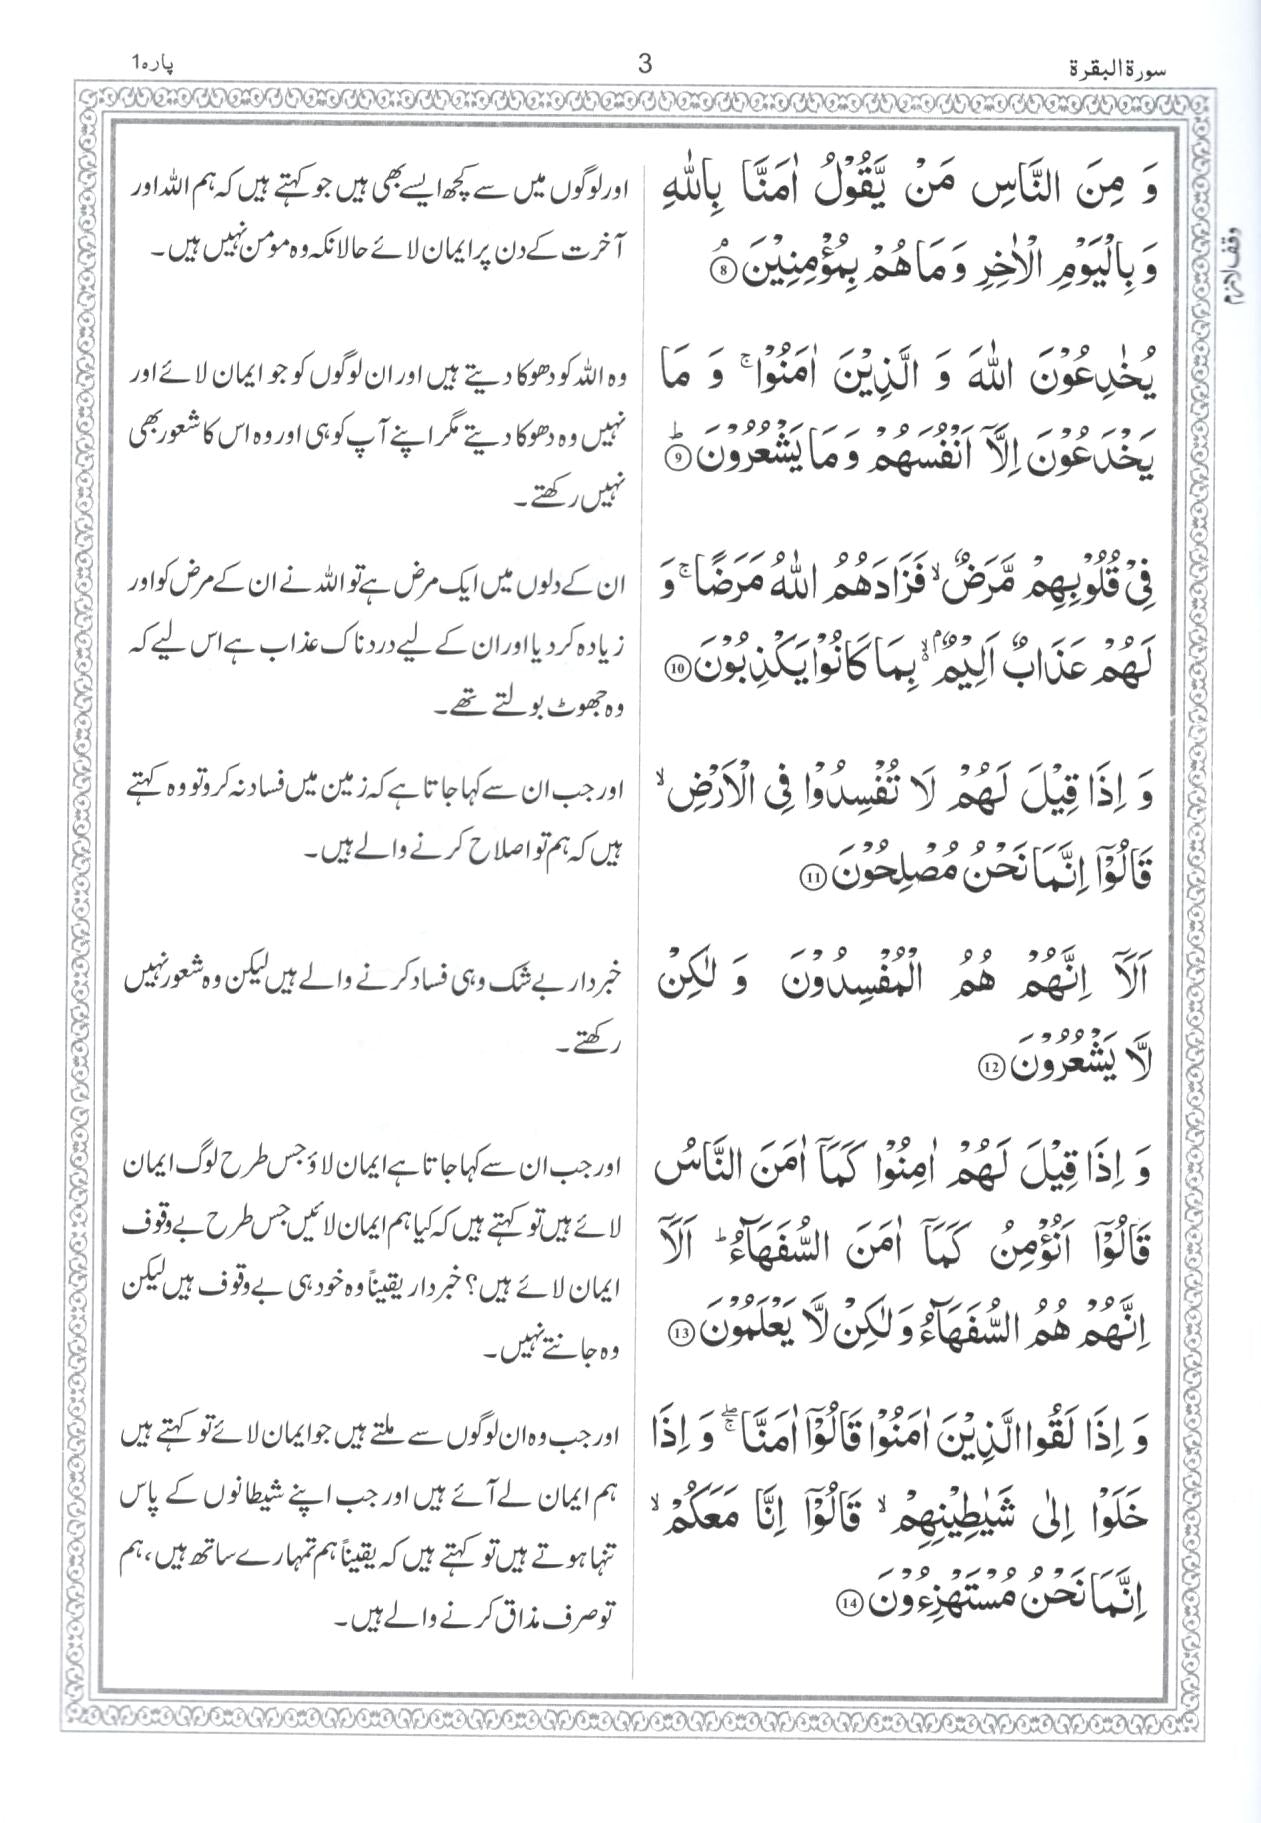 سورة البقرة
3
پارہ 1
وَ مِنَ النَّاسِ مَنْ يَّقُوْلُ اٰمَنَّا بِاللّٰهِ
وَ بِالْيَوْمِ الْاٰخِرِ وَ مَا هُمْ بِمُؤْمِنِيْنَ ۘ 8
يُخٰدِعُوْنَ اللّٰهَ وَ الَّذِيْنَ اٰمَنُوْا ۚ وَ مَا
يَخْدَعُوْنَ اِلَّاۤ اَنْفُسَهُمْ وَ مَا يَشْعُرُوْنَ ؕ 9
فِيْ قُلُوْبِهِمْ مَّرَضٌ ۙ فَزَادَهُمُ اللّٰهُ مَرَضًا ۚ وَ
لَهُمْ عَذَابٌ اَلِيْمٌۢ ۙ۬ بِمَا كَانُوْا يَكْذِبُوْنَ 10
وَ اِذَا قِيْلَ لَهُمْ لَا تُفْسِدُوْا فِي الْاَرْضِ ۙ
قَالُوْۤا اِنَّمَا نَحْنُ مُصْلِحُوْنَ 11
اَلَاۤ اِنَّهُمْ هُمُ الْمُفْسِدُوْنَ وَ لٰكِنْ
لَّا يَشْعُرُوْنَ 12
وَ اِذَا قِيْلَ لَهُمْ اٰمِنُوْا كَمَاۤ اٰمَنَ النَّاسُ
قَالُوْۤا اَنُؤْمِنُ كَمَاۤ اٰمَنَ السُّفَهَآءُ ؕ اَلَاۤ
اِنَّهُمْ هُمُ السُّفَهَآءُ وَ لٰكِنْ لَّا يَعْلَمُوْنَ 13
وَ اِذَا لَقُوا الَّذِيْنَ اٰمَنُوْا قَالُوْۤا اٰمَنَّا ۖۚ وَ اِذَا
خَلَوْا اِلٰى شَيٰطِيْنِهِمْ ۙ قَالُوْۤا اِنَّا مَعَكُمْ ۙ
اِنَّمَا نَحْنُ مُسْتَهْزِءُوْنَ 14
اور لوگوں میں سے کچھ ایسے بھی ہیں جو کہتے ہیں کہ ہم اللہ اور
آخرت کے دن پر ایمان لائے حالانکہ وہ مومن نہیں ہیں۔
وہ اللہ کو دھوکا دیتے ہیں اور ان لوگوں کو جو ایمان لائے اور
نہیں وہ دھوکا دیتے مگر اپنے آپ کو ہی اور وہ اس کا شعور بھی
نہیں رکھتے۔
ان کے دلوں میں ایک مرض ہے تو اللہ نے ان کے مرض کو اور
زیادہ کر دیا اور ان کے لیے دردناک عذاب ہے اس لیے کہ
وہ جھوٹ بولتے تھے۔
اور جب ان سے کہا جاتا ہے کہ زمین میں فساد نہ کرو تو وہ کہتے
ہیں کہ ہم تو اصلاح کرنے والے ہیں۔
خبردار بے شک وہی فساد کرنے والے ہیں لیکن وہ شعور نہیں
رکھتے۔
اور جب ان سے کہا جاتا ہے ایمان لاؤ جس طرح لوگ ایمان
لائے ہیں تو کہتے ہیں کہ کیا ہم ایمان لائیں جس طرح بے وقوف
ایمان لائے ہیں؟ خبردار یقیناً وہ خود ہی بے وقوف ہیں لیکن
وہ جانتے نہیں۔
اور جب وہ ان لوگوں سے ملتے ہیں جو ایمان لائے تو کہتے ہیں
ہم ایمان لے آئے ہیں اور جب اپنے شیطانوں کے پاس
تنہا ہوتے ہیں تو کہتے ہیں کہ یقیناً ہم تمہارے ساتھ ہیں، ہم
تو صرف مذاق کرنے والے ہیں۔
وقف لازم